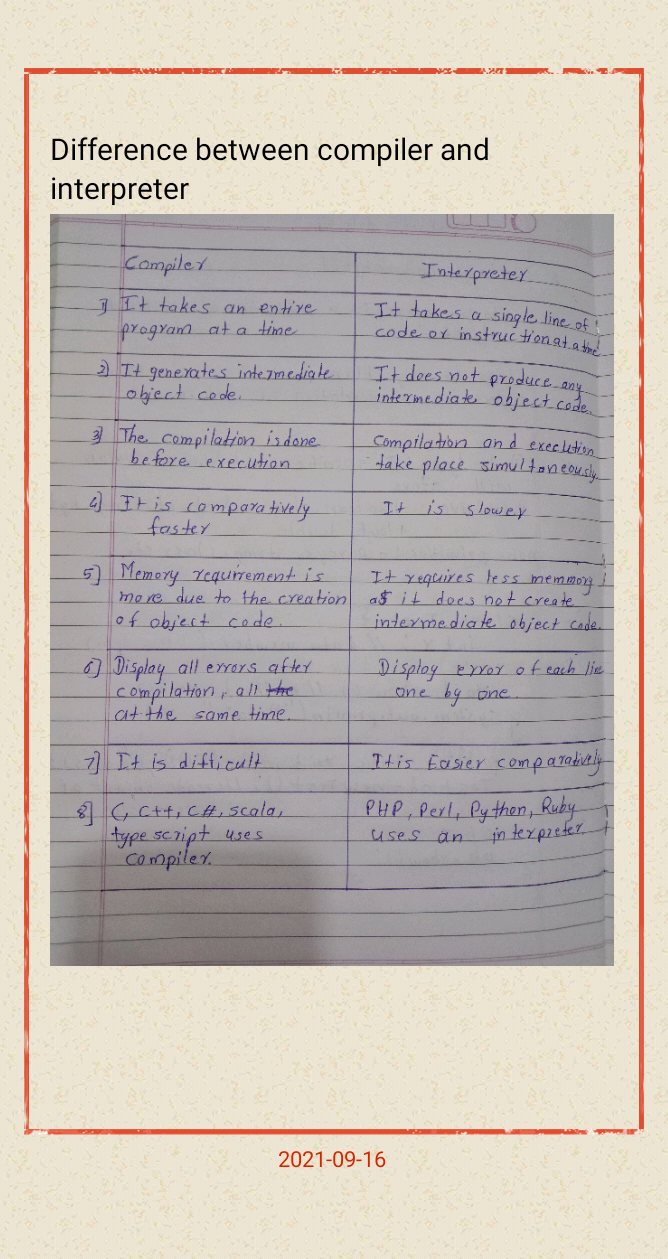 Difference between compiler and
interpreter
Compiler
Interpreter
1] It takes an entire
program at a time
It takes a single line of
code or instruction at a time
2] It generates intermediate
object code.
It does not produce any
intermediate object code.
3] The compilation is done
before execution
Compilation and execution
take place simultaneously.
4] It is comparatively
faster
It is slower
5] Memory requirement is
more due to the creation
of object code.
It requires less memmory
as it does not create
intermediate object code.
6] Display all errors after
compilation, all the
at the same time.
Display error of each line
one by one.
7] It is difficult
It is Easier comparatively
8] C, C++, C#, scala,
type script uses
compiler.
PHP, Perl, Python, Ruby
uses an interpreter
2021-09-16